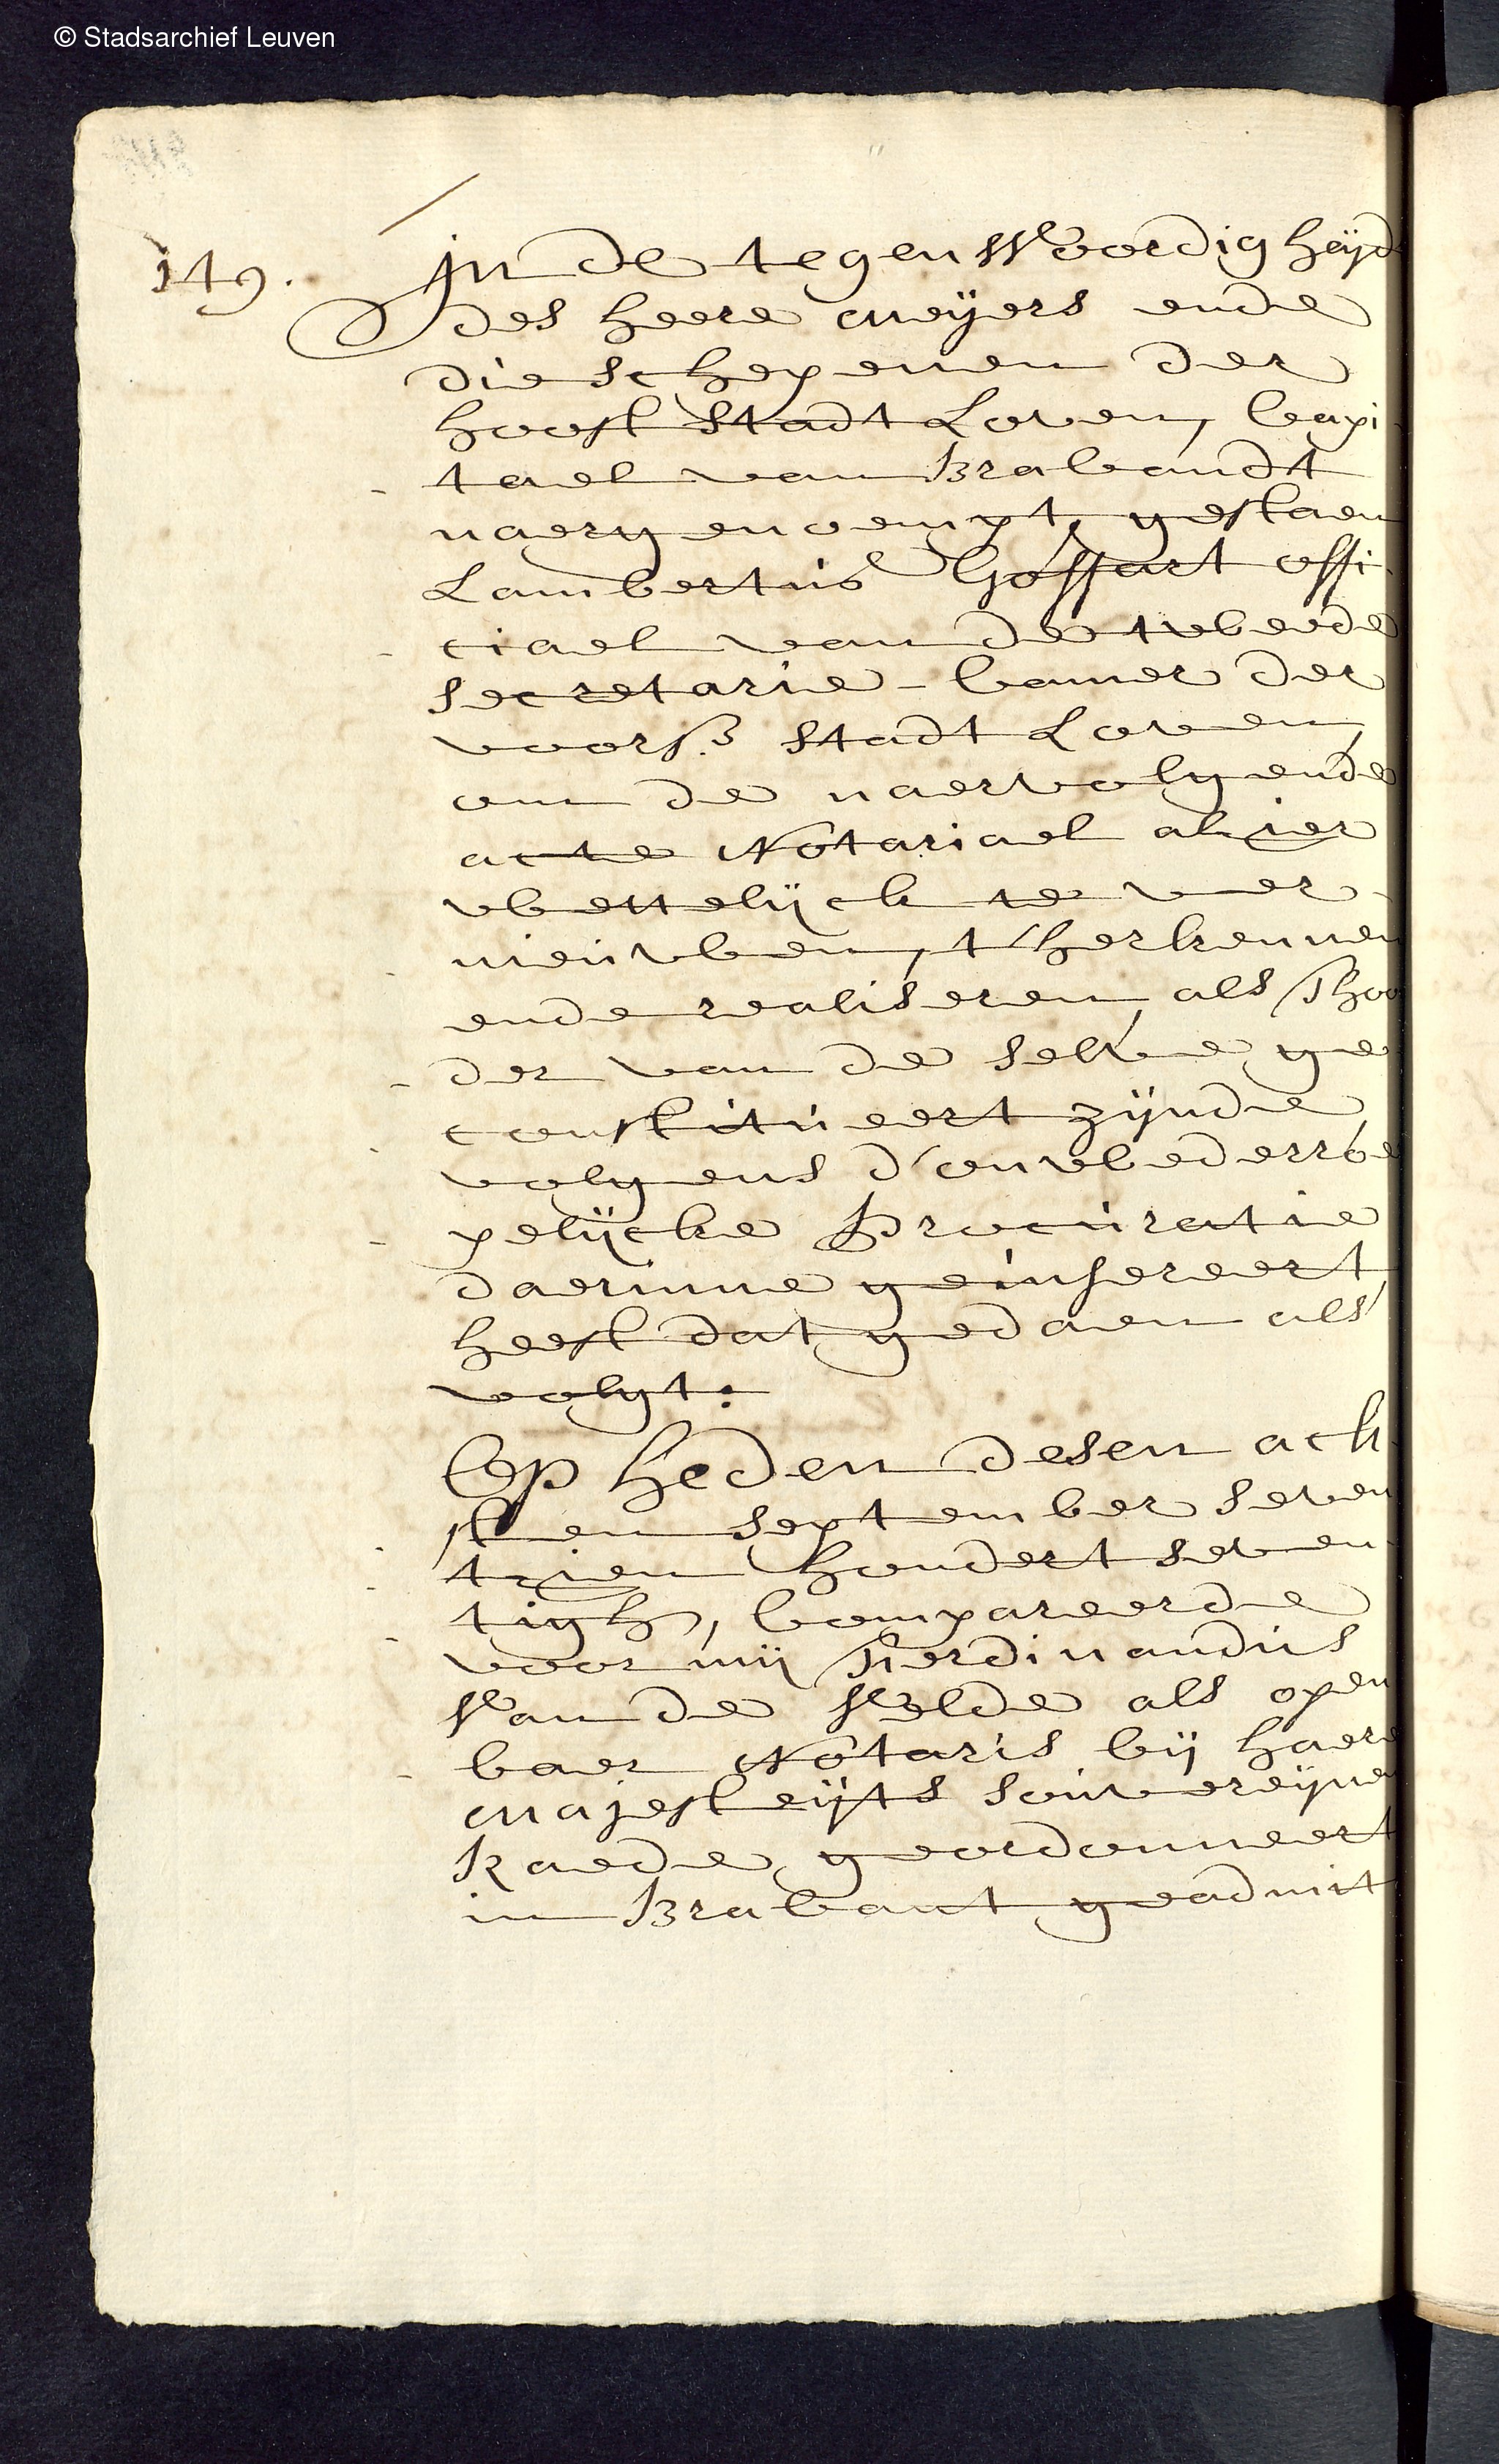 © Stadsarchief Leuven
149. In de tegenwoordigheyd
des heere meyers ende
die schepenen der
hooft stadt Loven, Capi
tael van Brabandt
naergenoempt, gestaen
Lambertus Goffart offi
ciael van de tweede
secretarie-camer der
voors. stadt Loven,
om de naervolgende
acte Notariael alhier
wettelijck te ver
nieuwen, t'herkennen
ende realiseren, als thoo
der van de selve ge
constitueert zijnde
volgens d'onwederroe
pelijcke Procuratie
daerinne geinsereert,
heeft dat gedaen als
volgt:
Op heden desen ach
sten september seven
thien hondert seven
tigh, Compareerde
voor mij Ferdinandus
Van de Velde als open
baer Notaris bij haere
Majesteyts souvereynen
Raede, geordonneert
in Brabant geadmit